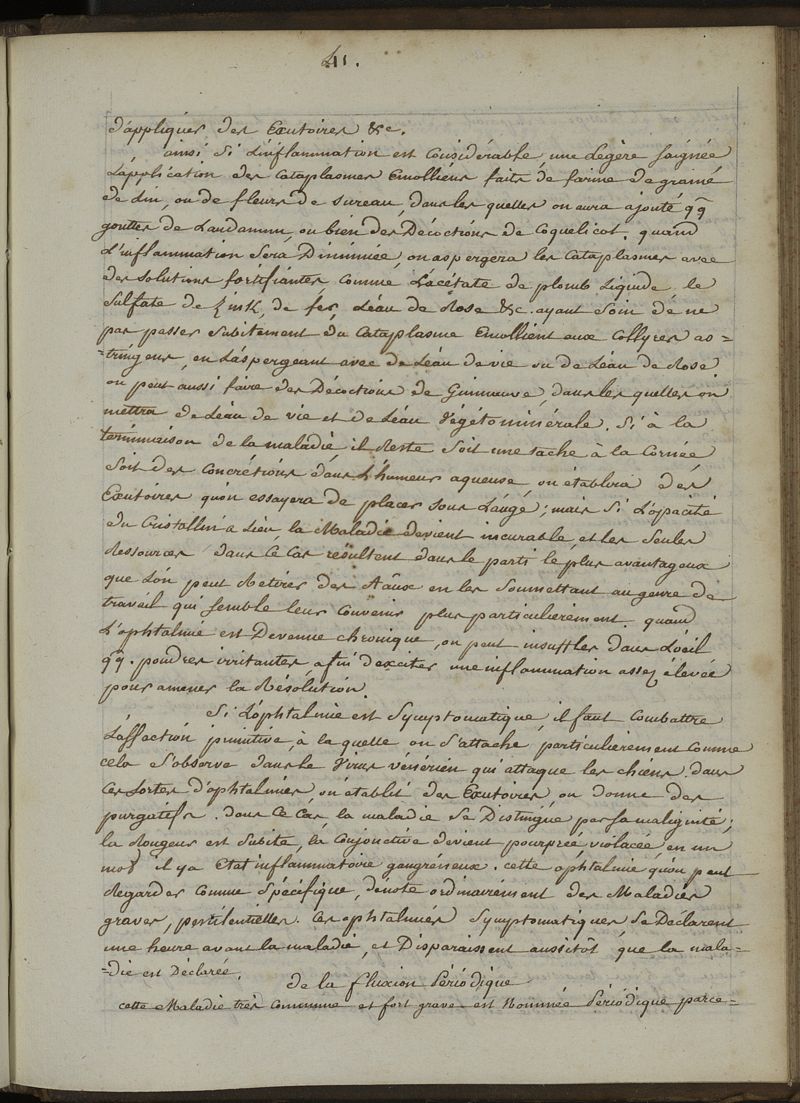 41.
d'appliquer des Exutoires &c.
ainsi, Si L'inflammation est Considérable, une Légère Saignée
L'application des Cataplasmes Emolliens faits de farine de graine
de Lin, ou de fleurs de Sureau, dans les quelles on aura ajouté qq
gouttes de Laudamum, ou bien des Décoctions de Coquelicot. quand
L'inflammation Sera Diminuée, on aspergera les Cataplasmes avec
des Solutions fortifiantes, Comme L'acétate de plomb Liquide le
Sulfate de Zink, de fer, L'éau de Rose &c. ayant Soin de ne
pas passer Subitement du Cataplasme Emollient aux Collyres as=
=tringens, en L'aspergeant avec de L'éau de vie ou de L'éau de Rose
on peut aussi faire des Décoctions de Guimauve, dans les quelles on
mettra de L'éau de vie et de L'éau Végéto minérale. Si à la
terminaison de la maladie il Reste Soit une tache à la Cornée
Soit des Concrétions dans L'humeur aqueuse on établira des
Exutoires qu'on essayera de placer sous L'auge; mais Si L'opacité
du Cristallin a Lieu, la Maladie devient incurable, et les Seules
Ressources dans Ce Cas résultent dans le parti le plus avantageux
que L'on peut Retirer des Aâux en les Soumettant au genre de
travail qui Semble leur Convenir plus particulierement. quand
L'ophtalmie est Devenue chronique, on peut insuffler dans L'oeil
qq. poudres irritantes, afin d'exciter une inflammation assez élevée
pour amener la Résolution.
Si L'ophtalmie est Symptomatique, il faut Combattre
L'affection primitive, à la quelle on S'attache particulierement Comme
cela S'observe dans le Virus vénérien qui attaque les chiens. dans
Ces Sortes d'ophtalmies, on établit des Exutoires, on donne des
purgatifs. dans Ce Cas la maladie Se Distingue par Sa malignité;
la Rougeur est Subite, la Conjonctive devient pourprée, violacée, en un
mot il y a Etat inflammatoire gangréneux. cette ophtalmie qu'on peut
Regarder Comme Spécifique, dénote ordinairement des Maladies
graves, pestilentielles. Ces ophtalmies Symptomatiques Se Déclarent
une heure avant la maladie, et Disparaissent aussitôt que la mala=
=die est Déclarée.
de la fluxion Périodique
cette Maladie très Commune et fort grave est Nommée Périodique parce=